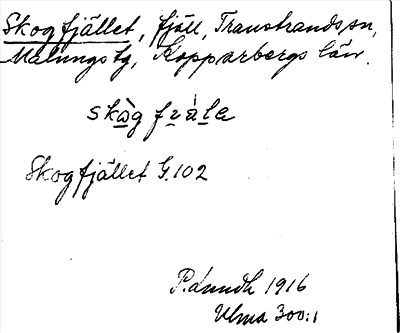 Skogfjället, fjäll, Transtrands sn,
Malungs tg, Kopparbergs län.
Skogfjället G.102
1916
Ulma 300:1